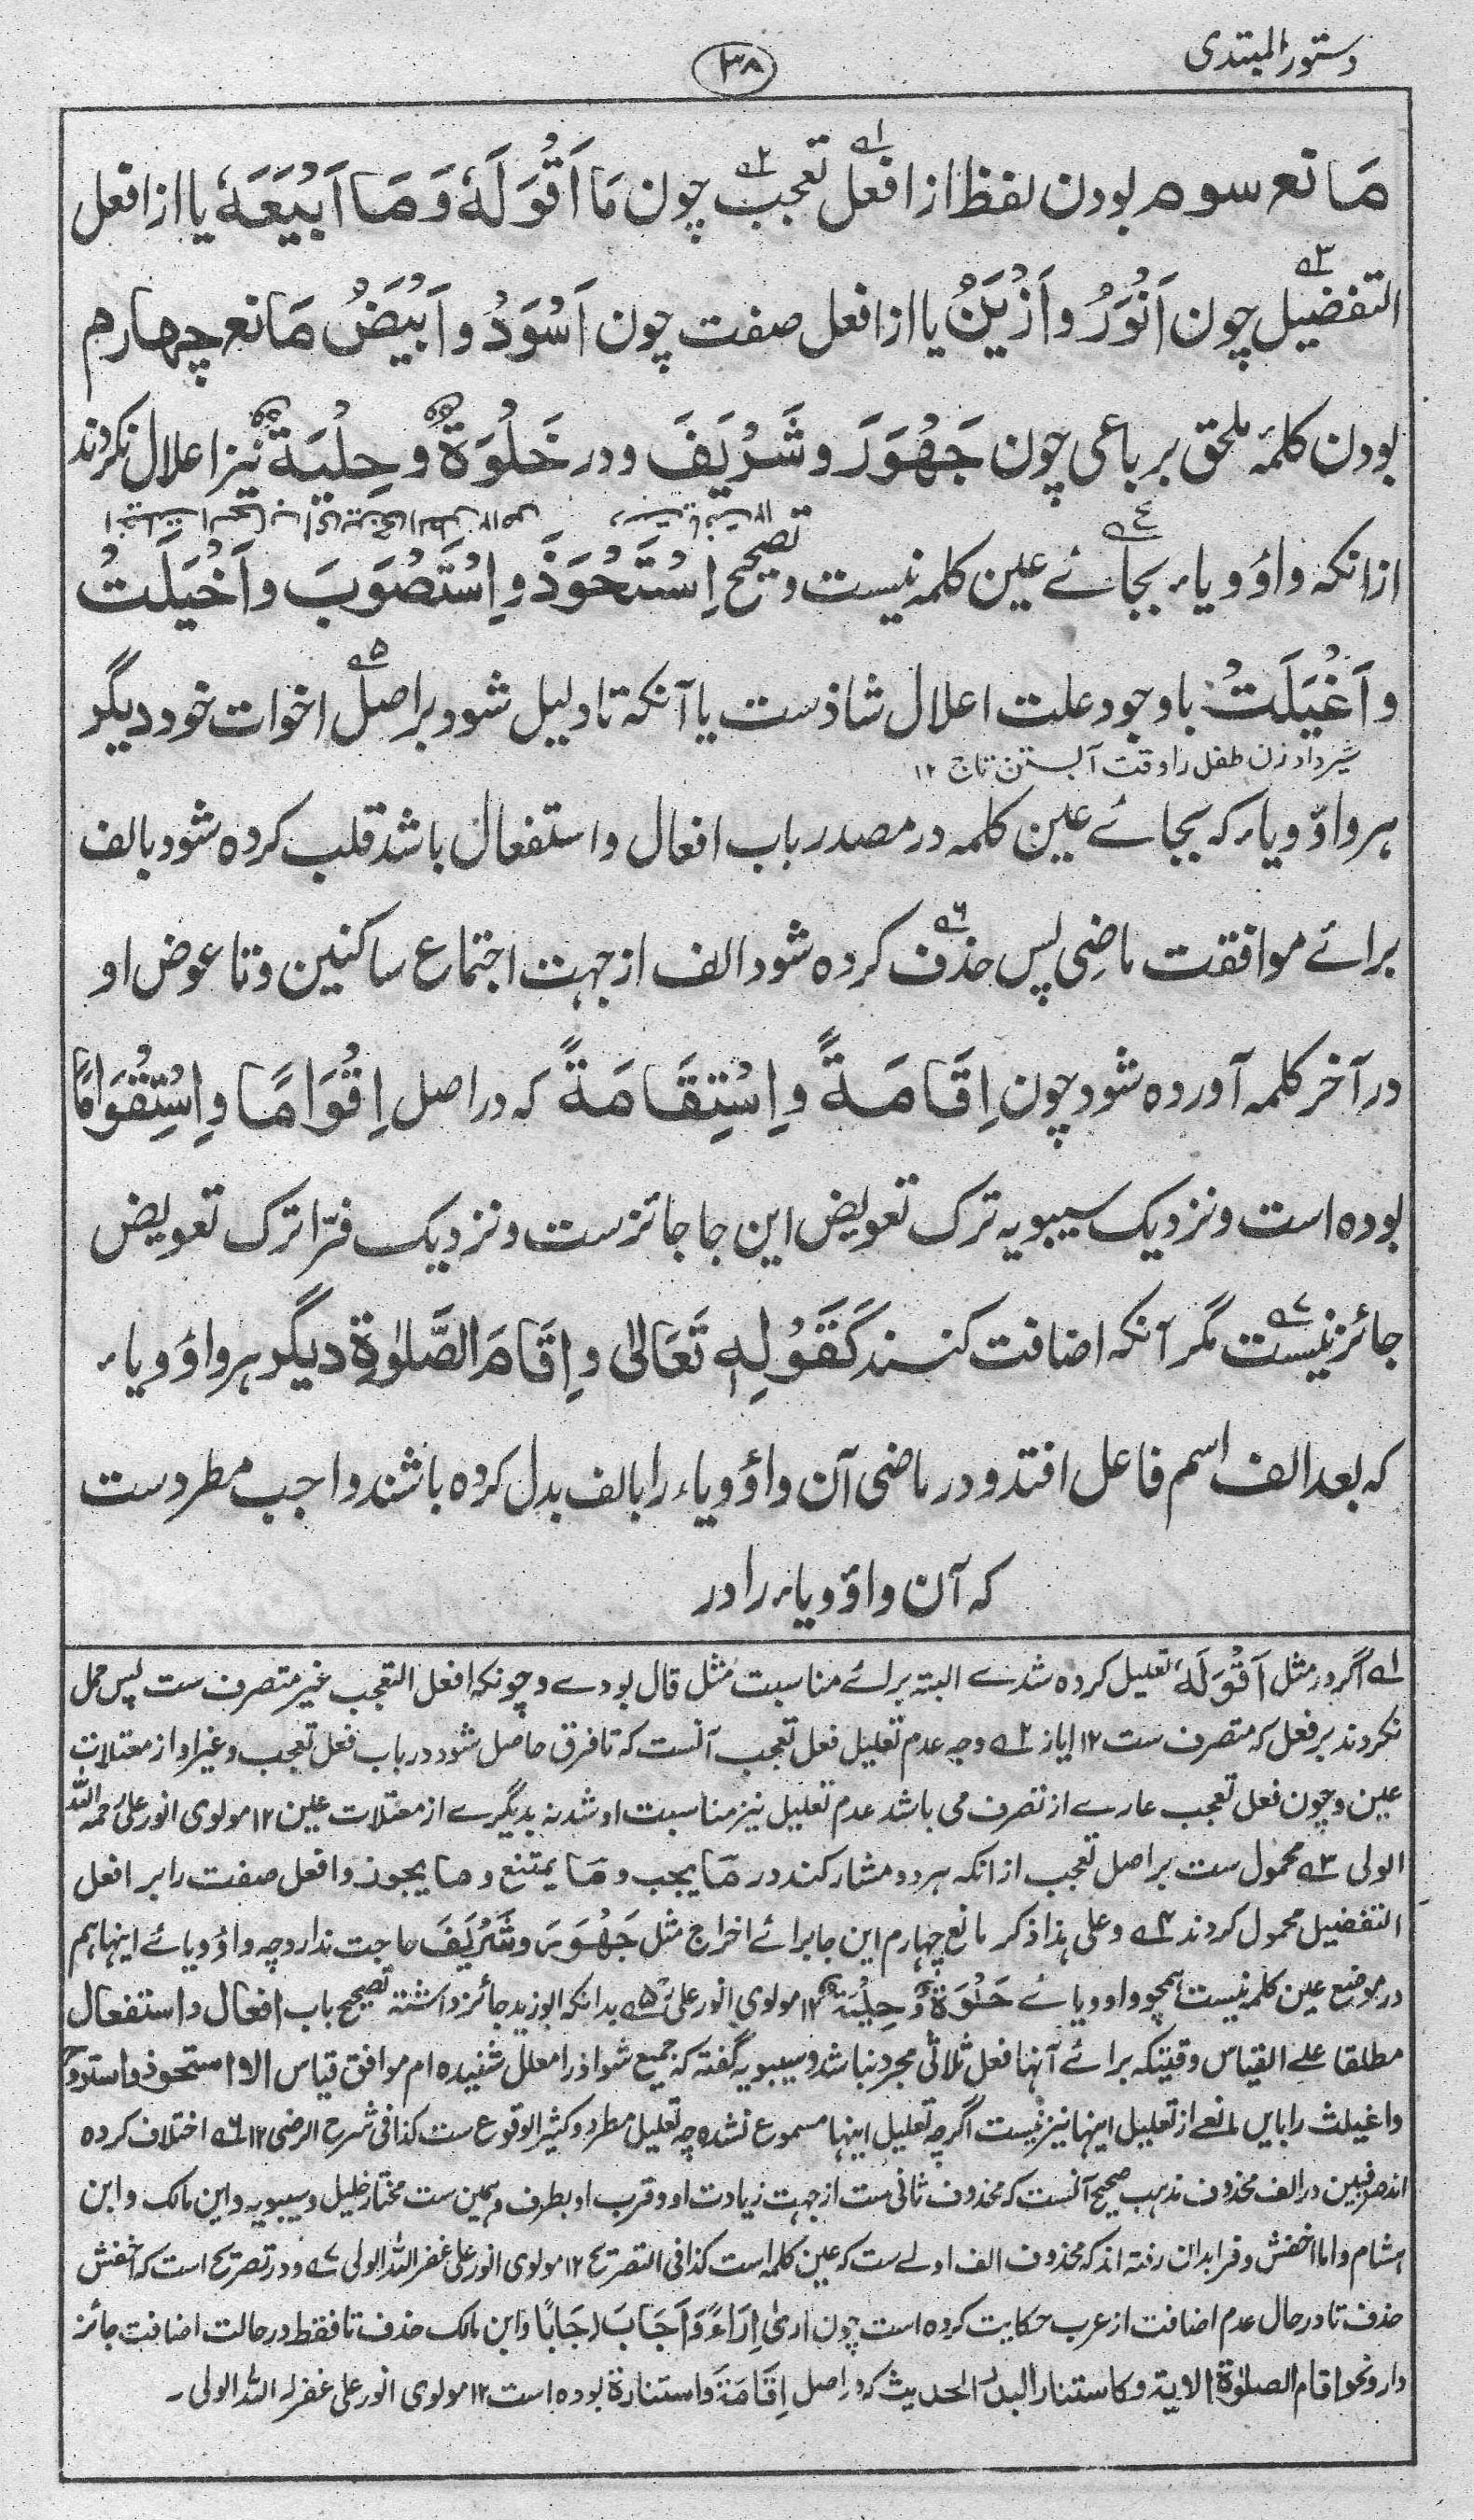 دستور المبتدی
۳۸
مَانع سوم بودن لفظ از افعل تعجب چون مَا اَقْوَلَهٗ وَمَا اَبْیَعَهٗ یا از افعل
التفضیل چون اَنْوَرُ و اَزْیَنُ یا از افعل صفت چون اَسْوَدُ و اَبْیَضُ مَانع چهارم
بودن کلمہ ملحق بر باعی چون جَهْوَرَ و شَرْیَفَ و در خَلْوَةٌ و حِلْیَةٌ نیز اعلال نکردند
ازانکہ واؤ و یاء بجائے عین کلمہ نیست و تصحیح اِسْتَحْوَذَ و اِسْتَصْوَبَ و اَخْیَلَتْ
و اَغْیَلَتْ باوجود علت اعلال شاذست یا آنکہ تا دلیل شود بر اصل اخوات خود دیگر
شیر داد زن طفل را وقت آبستن تاج ۱۲
هر واؤ و یاء کہ بجائے عین کلمہ در مصدر باب افعال و استفعال باشد قلب کردہ شود بالف
برائے موافقت ماضِی پس حذف کردہ شود الف از جہت اجتماع ساکنین و تا عوض او
در آخر کلمہ آوردہ شود چون اِقَامَةً و اِسْتِقَامَةً کہ در اصل اِقْوَامًا و اِسْتِقْوَامًا
بودہ است و نزدیک سیبویہ ترک تعویض این جا جائزست و نزدیک فرّا ترک تعویض
جائز نیست مگر آنکہ اضافت کنند کَقَوْلِہٖ تَعَالٰی و اِقَامَ الصَّلٰوةِ دیگر ہر واؤ و یاء
کہ بعد الف اسم فاعل افتد و در ماضی آن واؤ و یاء را بالف بدل کردہ باشند واجب مطردست
کہ آن واؤ و یاء را در
۱ اگر در مثل اَقْوَلَهٗ تعلیل کردہ شدے البتہ برائے مناسبت مثل قال بودے و چونکہ افعل التعجب غیر متصرف ست پس حمل
نکردند بر فعل کہ متصرف ست ۱۲ ایاز ۲ وجہ عدم تعلیل فعل تعجب آنست کہ تا فرق حاصل شود در باب فعل تعجب و غیر او از معتلات
عین و چون فعل تعجب عارے از تصرف می باشد عدم تعلیل نیز مناسبت او شد نہ بدیگرے از معتلات عین ۱۲ مولوی انور علی رحمہ اللہ
الولی ۳ محمول ست بر اصل تعجب ازانکہ ہر دو مشارکند در مَا یجب و مَا یمتنع و ما یجوز و افعل صفت را بر افعل
التفضیل محمول کردند ۴ و علی ہذا ذکر مانع چہارم این جا برائے اخراج مثل جَهْوَرَ و شَرْیَفَ حاجت ندارد چہ واؤ و یائے اینہا ہم
در موضع عین کلمہ نیست ہمچو واو و یائے خَلْوَةٌ وَحِلْیَةٌ ۱۲ مولوی انور علی ۵ بدانکہ ابوزید جائز داشتہ تصحیح باب افعال و استفعال
مطلقا علے القیاس وقتیکہ برائے آنہا فعل ثلاثی مجرد نباشد و سیبویہ گفتہ کہ جمیع شواذ را معلل شنیدہ ام موافق قیاس الا استحوذ و استروح
و اغیلت را بایں مانعے از تعلیل اینہا نیز نیست اگرچہ تعلیل اینہا مسموع نشدہ چہ تعلیل مطرد و کثیر الوقوع ست کذا فی شرح الرضی ۱۲ ۶ اختلاف کردہ
اند صرفیین در الف محذوف مذہب صحیح آنست کہ محذوف ثانی ست از جہت زیادت او و قرب او بطرف و ہمین ست مختار خلیل و سیبویہ و ابن مالک و ابن
ہشام و اما اخفش و فرا بدان رفتہ اند کہ محذوف الف اولے ست کہ عین کلمہ است کذا فی التصریح ۱۲ مولوی انور علی غفر اللہ الولی ۷ و در تصریح است کہ اخفش
حذف تا در حال عدم اضافت از عرب حکایت کردہ است چون اریٰ اِرَاءً وَ اَجَابَ اِجَابًا و ابن مالک حذف تا فقط در حالت اضافت جائز
دارد نحو اقام الصلوٰة الاٰیة و کاستنار البدر الحدیث کہ در اصل اِقَامَةَ و استنارة بودہ است ۱۲ مولوی انور علی غفر لہ اللہ الولی ۔